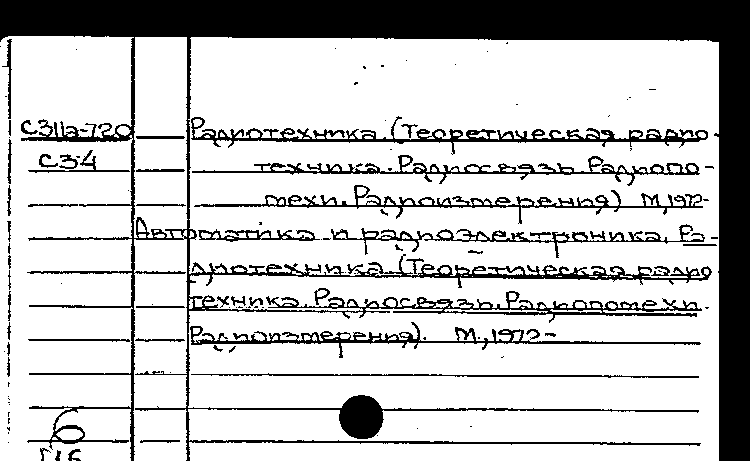 С311а-720 Радиотехника (Теоретическая радио-
С34 техника. Радиосвязь. Радиопо-
мехи. Радиоизмерения) М, 1972-
Автоматика и радиоэлектроника. Ра-
диотехника. (Теоретическая радио
техника. Радиосвязь. Радиопомехи.
Радиоизмерения). М., 1972-
6